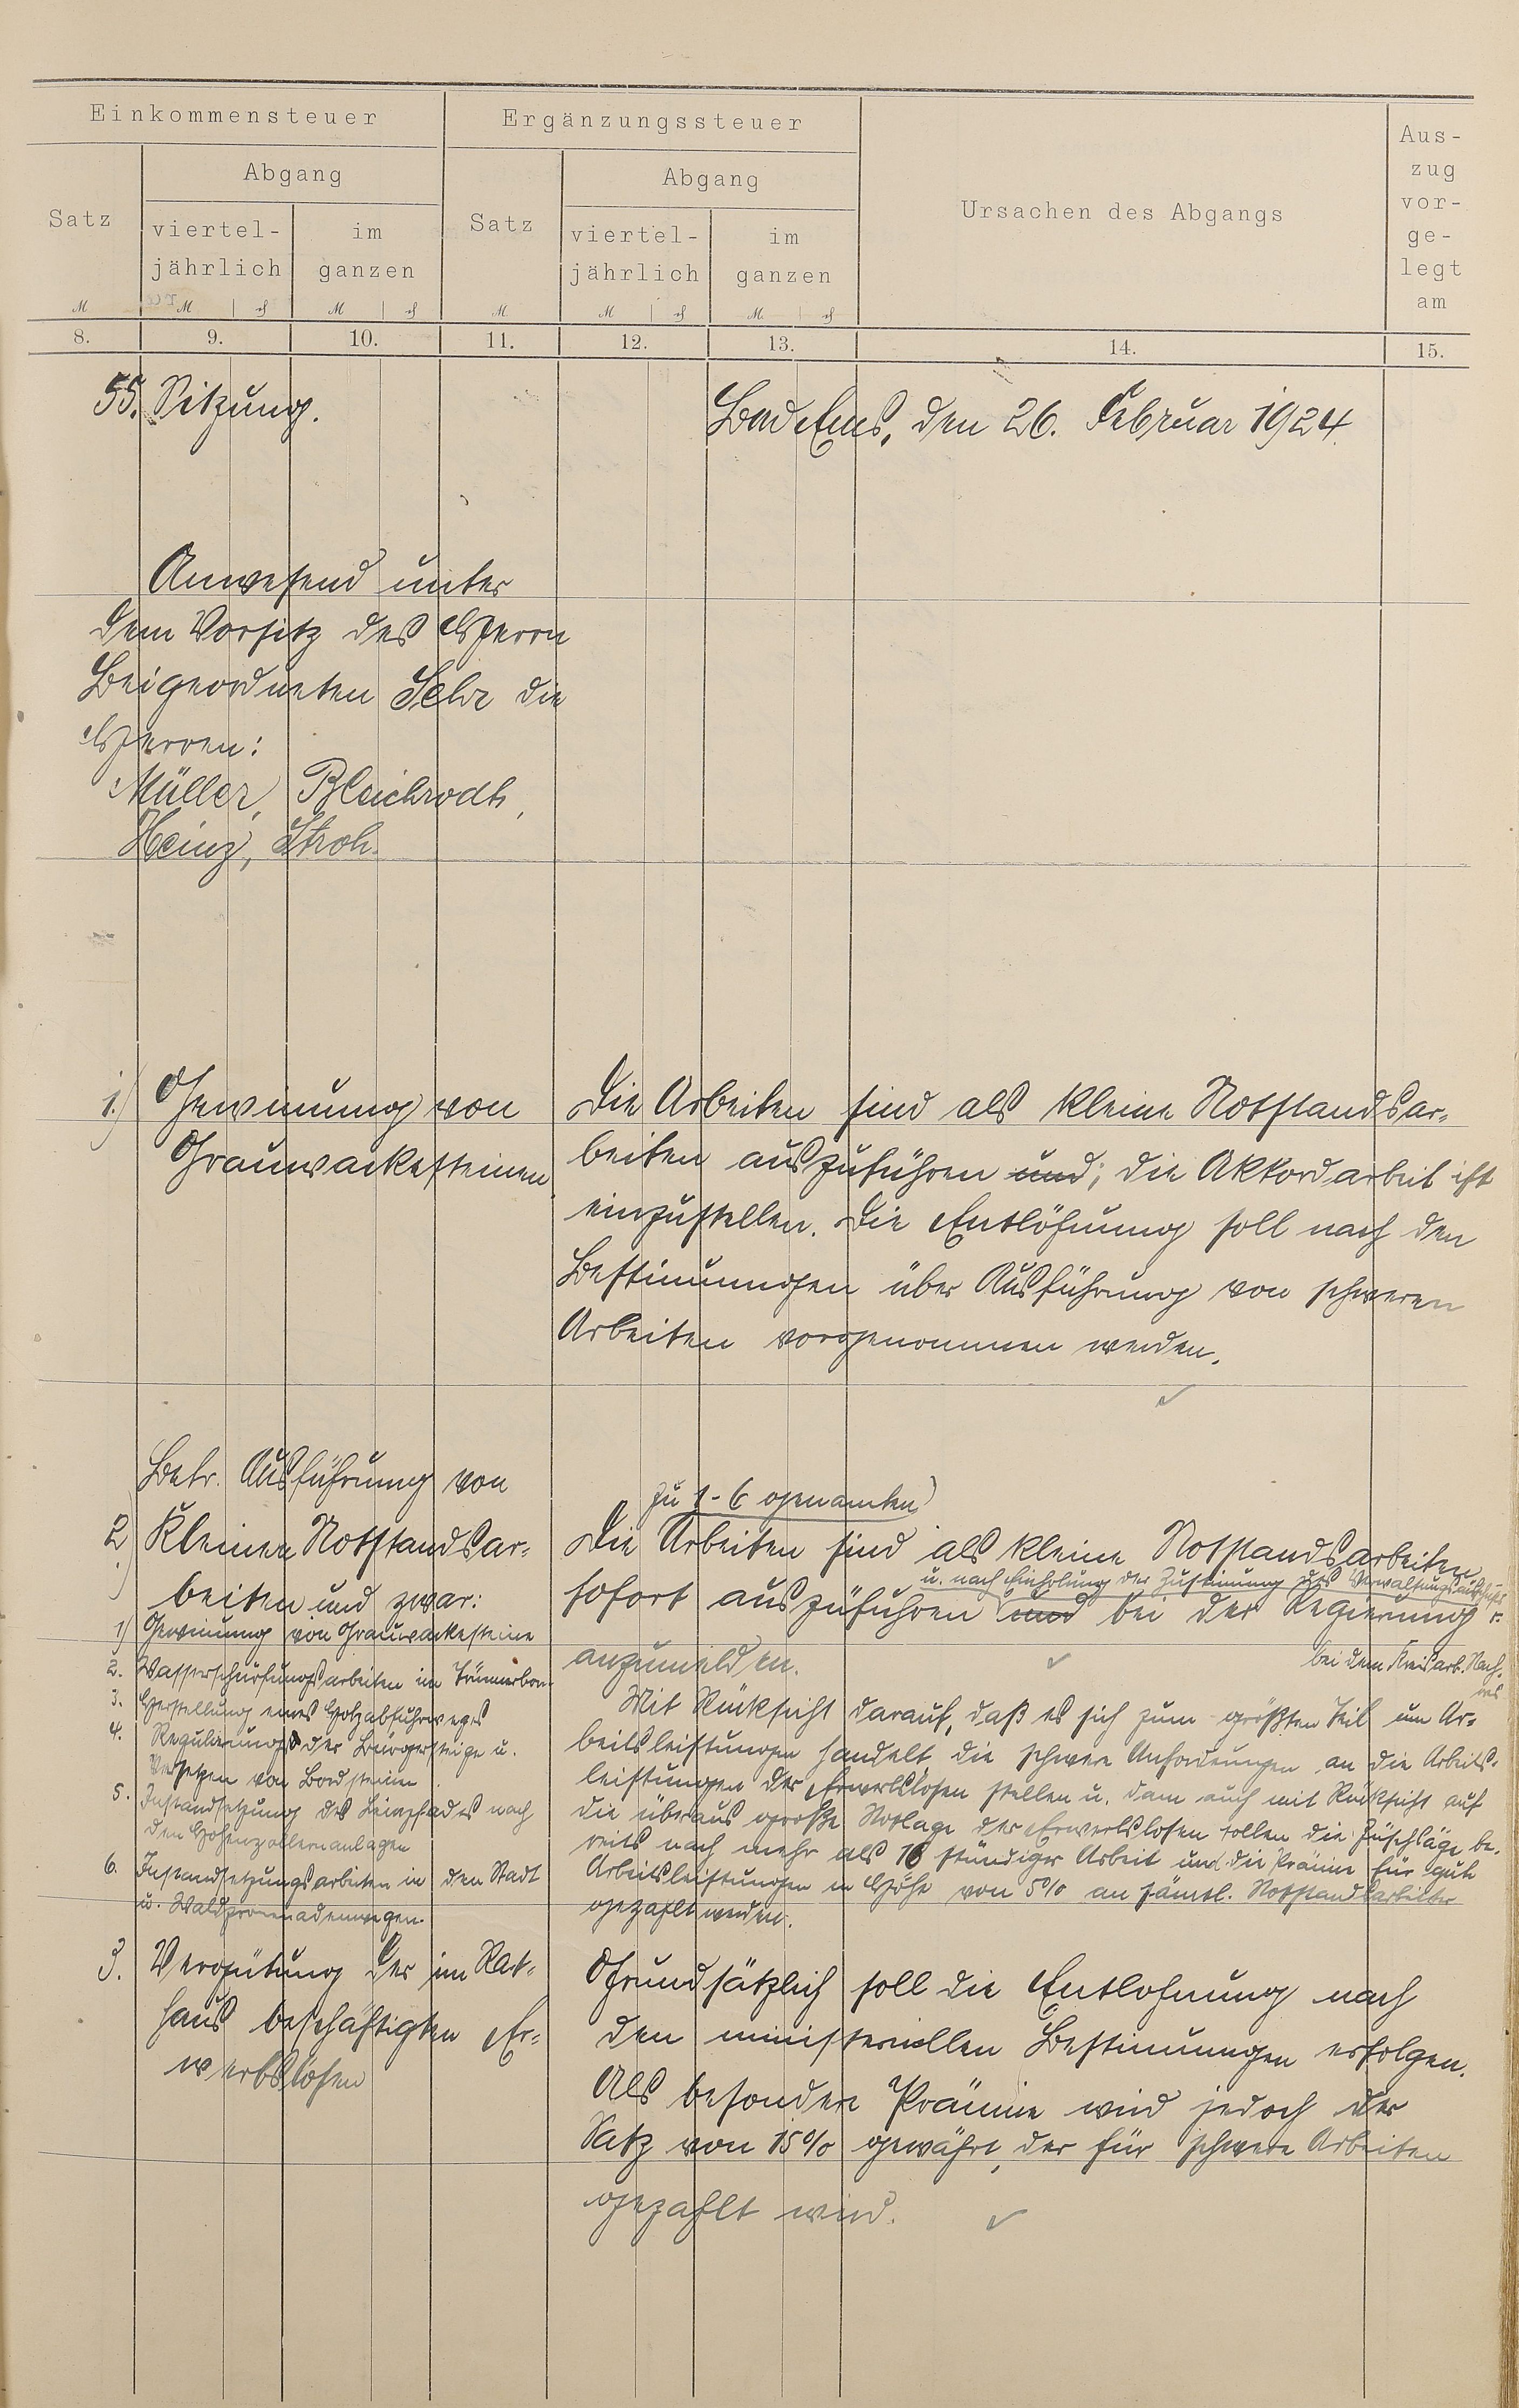 Einkommensteuer
Ergänzungssteuer
Ursachen des Abgangs
Aus-
zug
vor-
ge-
legt
am
Satz
Abgang
viertel-
jährlich
im
ganzen
Satz
Abgang
viertel-
jährlich
im
ganzen
M
M
M
M
M
M
8.
9.
10.
11.
12.
13.
14.
15.
55. Sitzung.
Bad Ems, den 26. Februar 1924.
Anwesend unter
dem Vorsitz des Herrn
Beigeordneten Sehr die
Herren:
Müller, Bleichrodt,
Heinz, Stroh.
1.) Gewinnung von
Grauwackesteinen
Die Arbeiten sind als kleine Notstandsar-
beiten auszuführen und; die Akkordarbeit ist
einzustellen. Die Entlöhnung soll nach den
Bestimmungen über Ausführung von schweren
Arbeiten vorgenommen werden.
Betr. Ausführung von
2) Kleinen Notstandsar-
beiten und zwar:
1) Gewinnung von Grauwackesteine
2. Wasserschürfungsarbeiten im
3. Herstellung eines Holzabfuhrweges
4. Regulierung der Bürgersteige u.
Versetzen von Bordsteinen
5. Instandsetzung des Leinpfades nach
den Hohenzollernanlagen
6. Instandsetzungsarbeiten in den Stadt
u. Waldpromenadenwegen.
zu 1-6 genannten
Die Arbeiten sind als kleine Notstandsarbeiten
u. nach Einholung der Zustimmung des Verwaltungsausschusses
sofort auszuführen und bei der Regierung u.
bei dem Kreisarb. Nach-
weis
anzumelden.
Mit Rücksicht darauf, daß es sich zum größten Teil um Ar-
beitsleistungen handelt, die schwere Anforderungen an die Arbeits-
leistungen der Erwerbslosen stellen u. dann auch mit Rücksicht auf
die überaus große Notlage der Erwerbslosen sollen die Zuschläge be-
reits nach mehr als 16 stündiger Arbeit und die Prämie für gute
Arbeitsleistungen in Höhe von 5% an sämtl. Notstandsarbeiter
gezahlt werden.
3. Vergütung der im Rat-
haus beschäftigten Er-
werbslosen
Grundsätzlich soll die Entlohnung nach
den ministeriellen Bestimmungen erfolgen.
Als besondere Prämie wird jedoch der
Satz von 15% gewährt, der für schwere Arbeiten
gezahlt wird.